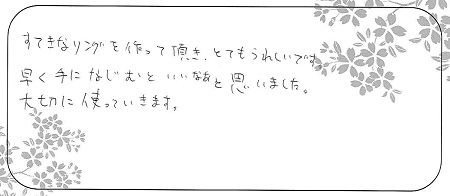 すてきなリングを作って頂き、とてもうれしいです。
早く手になじむといいなぁと思いました。
大切に使っていきます。